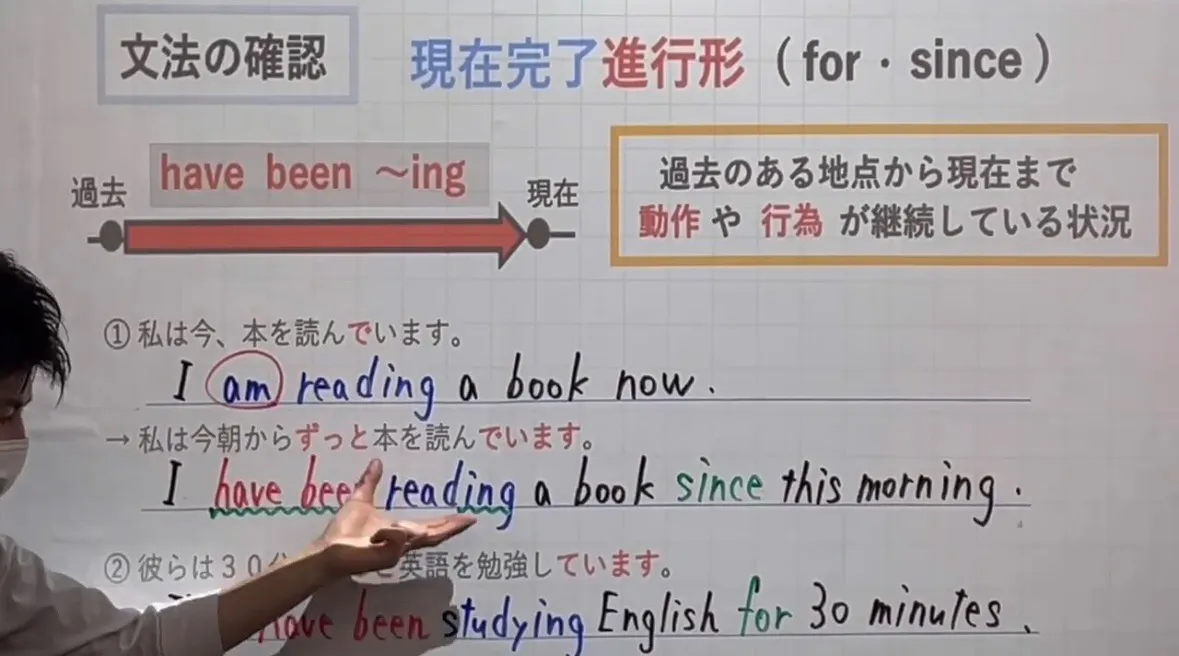 文法の確認
現在完了進行形（for・since）
過去
have been ～ing
現在
過去のある地点から現在まで
動作 や 行為 が継続している状況
① 私は今、本を読んでいます。
I am reading a book now.
→ 私は今朝からずっと本を読んでいます。
I have been reading a book since this morning.
② 彼らは３０ 英語を勉強しています。
have been studying English for 30 minutes.